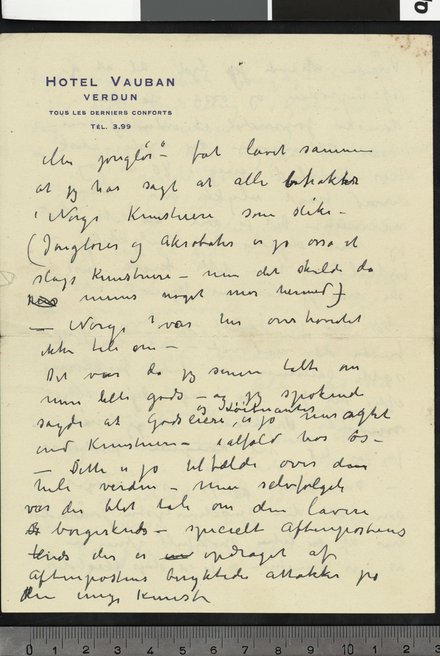 HOTEL VAUBAN
VERDUN
TOUS LES DERNIERS CONFORTS
TÉL. 3.99
eller "jonglör" – fåt lavet sammen
at jeg har sagt at alle betrakter
i Norge Kunstnere som slike –
(Jonglører og Akrobater er jo også et
slags Kunstnere – men det skulde da
menes noget mer hermed) –
– Norge var her overhovedet
ikke tale om –
Det var da jeg senere talte om
mine lille gods – og jeg spøkende
sagde at Godseiere, er jo mer agtet
end Kunstnere – ialfald hos os –
– Dette er jo tilfælde over den
hele verden – Men selvfølgelig
var der blot tale om den lavere
borgerkreds – specielt Aftenpostens
kreds der er opdraget af
Aftenpostens berygtede attakker på
den unge Kunst
0 1 2 3 4 5 6 7 8 9 10 1 2 3